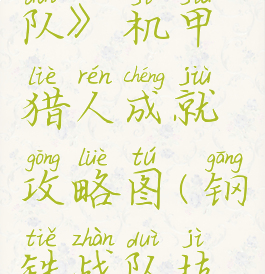 队》 机甲
liè rén chéng jiù
猎人成就
gōng lüè tú gāng
攻略图(钢
tiě zhàn duì jì
铁战队技